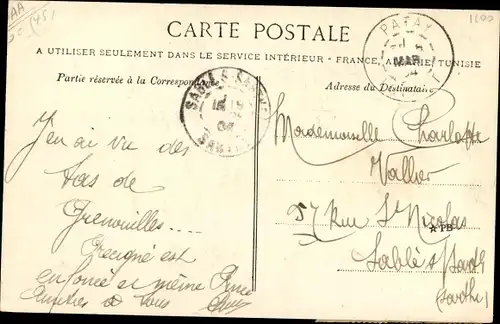 CARTE POSTALE
A UTILISER SEULEMENT DANS LE SERVICE INTÉRIEUR - FRANCE, ALGÉRIE, TUNISIE
Partie réservée à la Correspondance
Adresse du Destinataire
PATAY
MAR
J'en ai vu des
tas de
Grenouilles....
est
enfoncé et même
à tous
Mademoiselle Charlotte
Vallier
57 rue St Nicolas
PB
Sablé s/ Sarthe
(Sarthe)